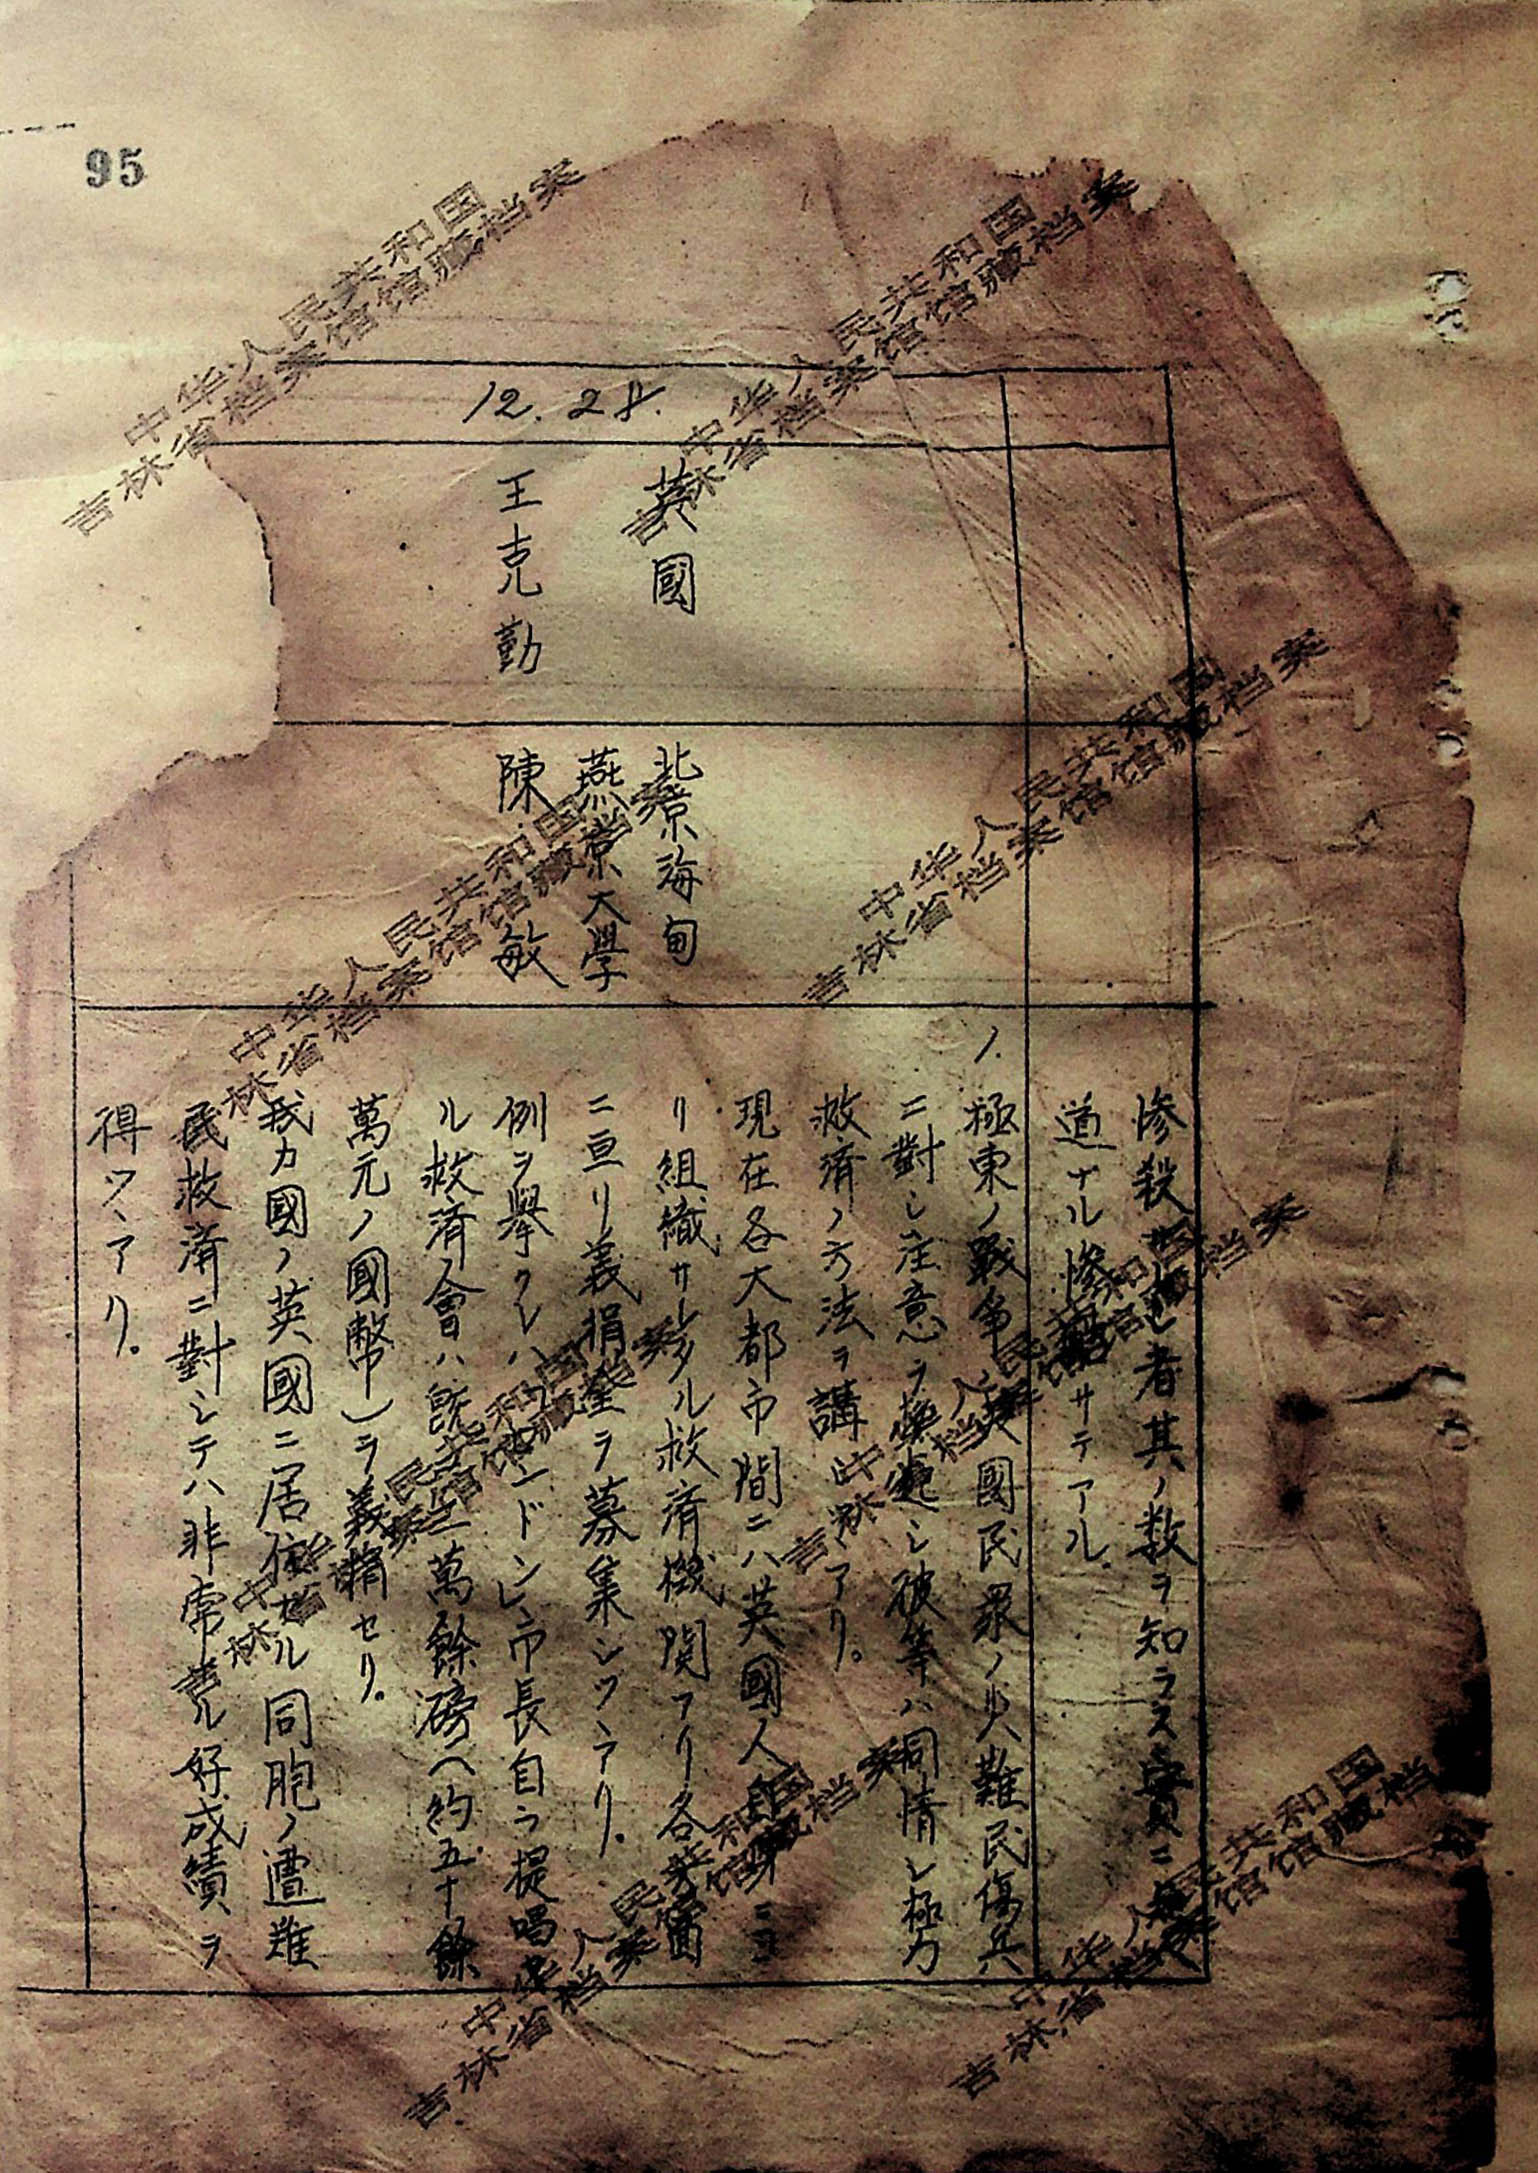 95
12.28.
英國
王克勤
北京海甸
燕京大學
陳敏
慘殺サレシ者其ノ数ヲ知ラス實ニ
道ナル慘サテアル.
1. 極東ノ戰争ハ英國民衆ノ火難民傷兵
ニ對シ注意ヲ シ彼等ハ同情シ極力
救済ノ方法ヲ講シツヽアリ。
現在各大都市間ニハ英國人自身ニヨ
リ組織サレタル救済機関アリ各方面
ニ亘リ義捐金ヲ募集シツヽアリ.
例ヲ擧クレハロンドン市長自ラ提唱セ
ル救済會ハ既ニ三萬餘磅(約五十餘
萬元ノ國幣)ヲ義捐セリ。
我カ國ノ英國ニ居住セル同胞ノ遭難
民救済ニ對シテハ非常ナル好成績ヲ
得ツヽアリ.
中华人民共和国
吉林省档案馆馆藏档案
中华人民共和国
吉林省档案馆馆藏档案
中华人民共和国
吉林省档案馆馆藏档案
中华人民共和国
吉林省档案馆馆藏档案
中华人民共和国
吉林省档案馆馆藏档案
中华人民共和国
吉林省档案馆馆藏档案
中华人民共和国
吉林省档案馆馆藏档案
中华人民共和国
吉林省档案馆馆藏档